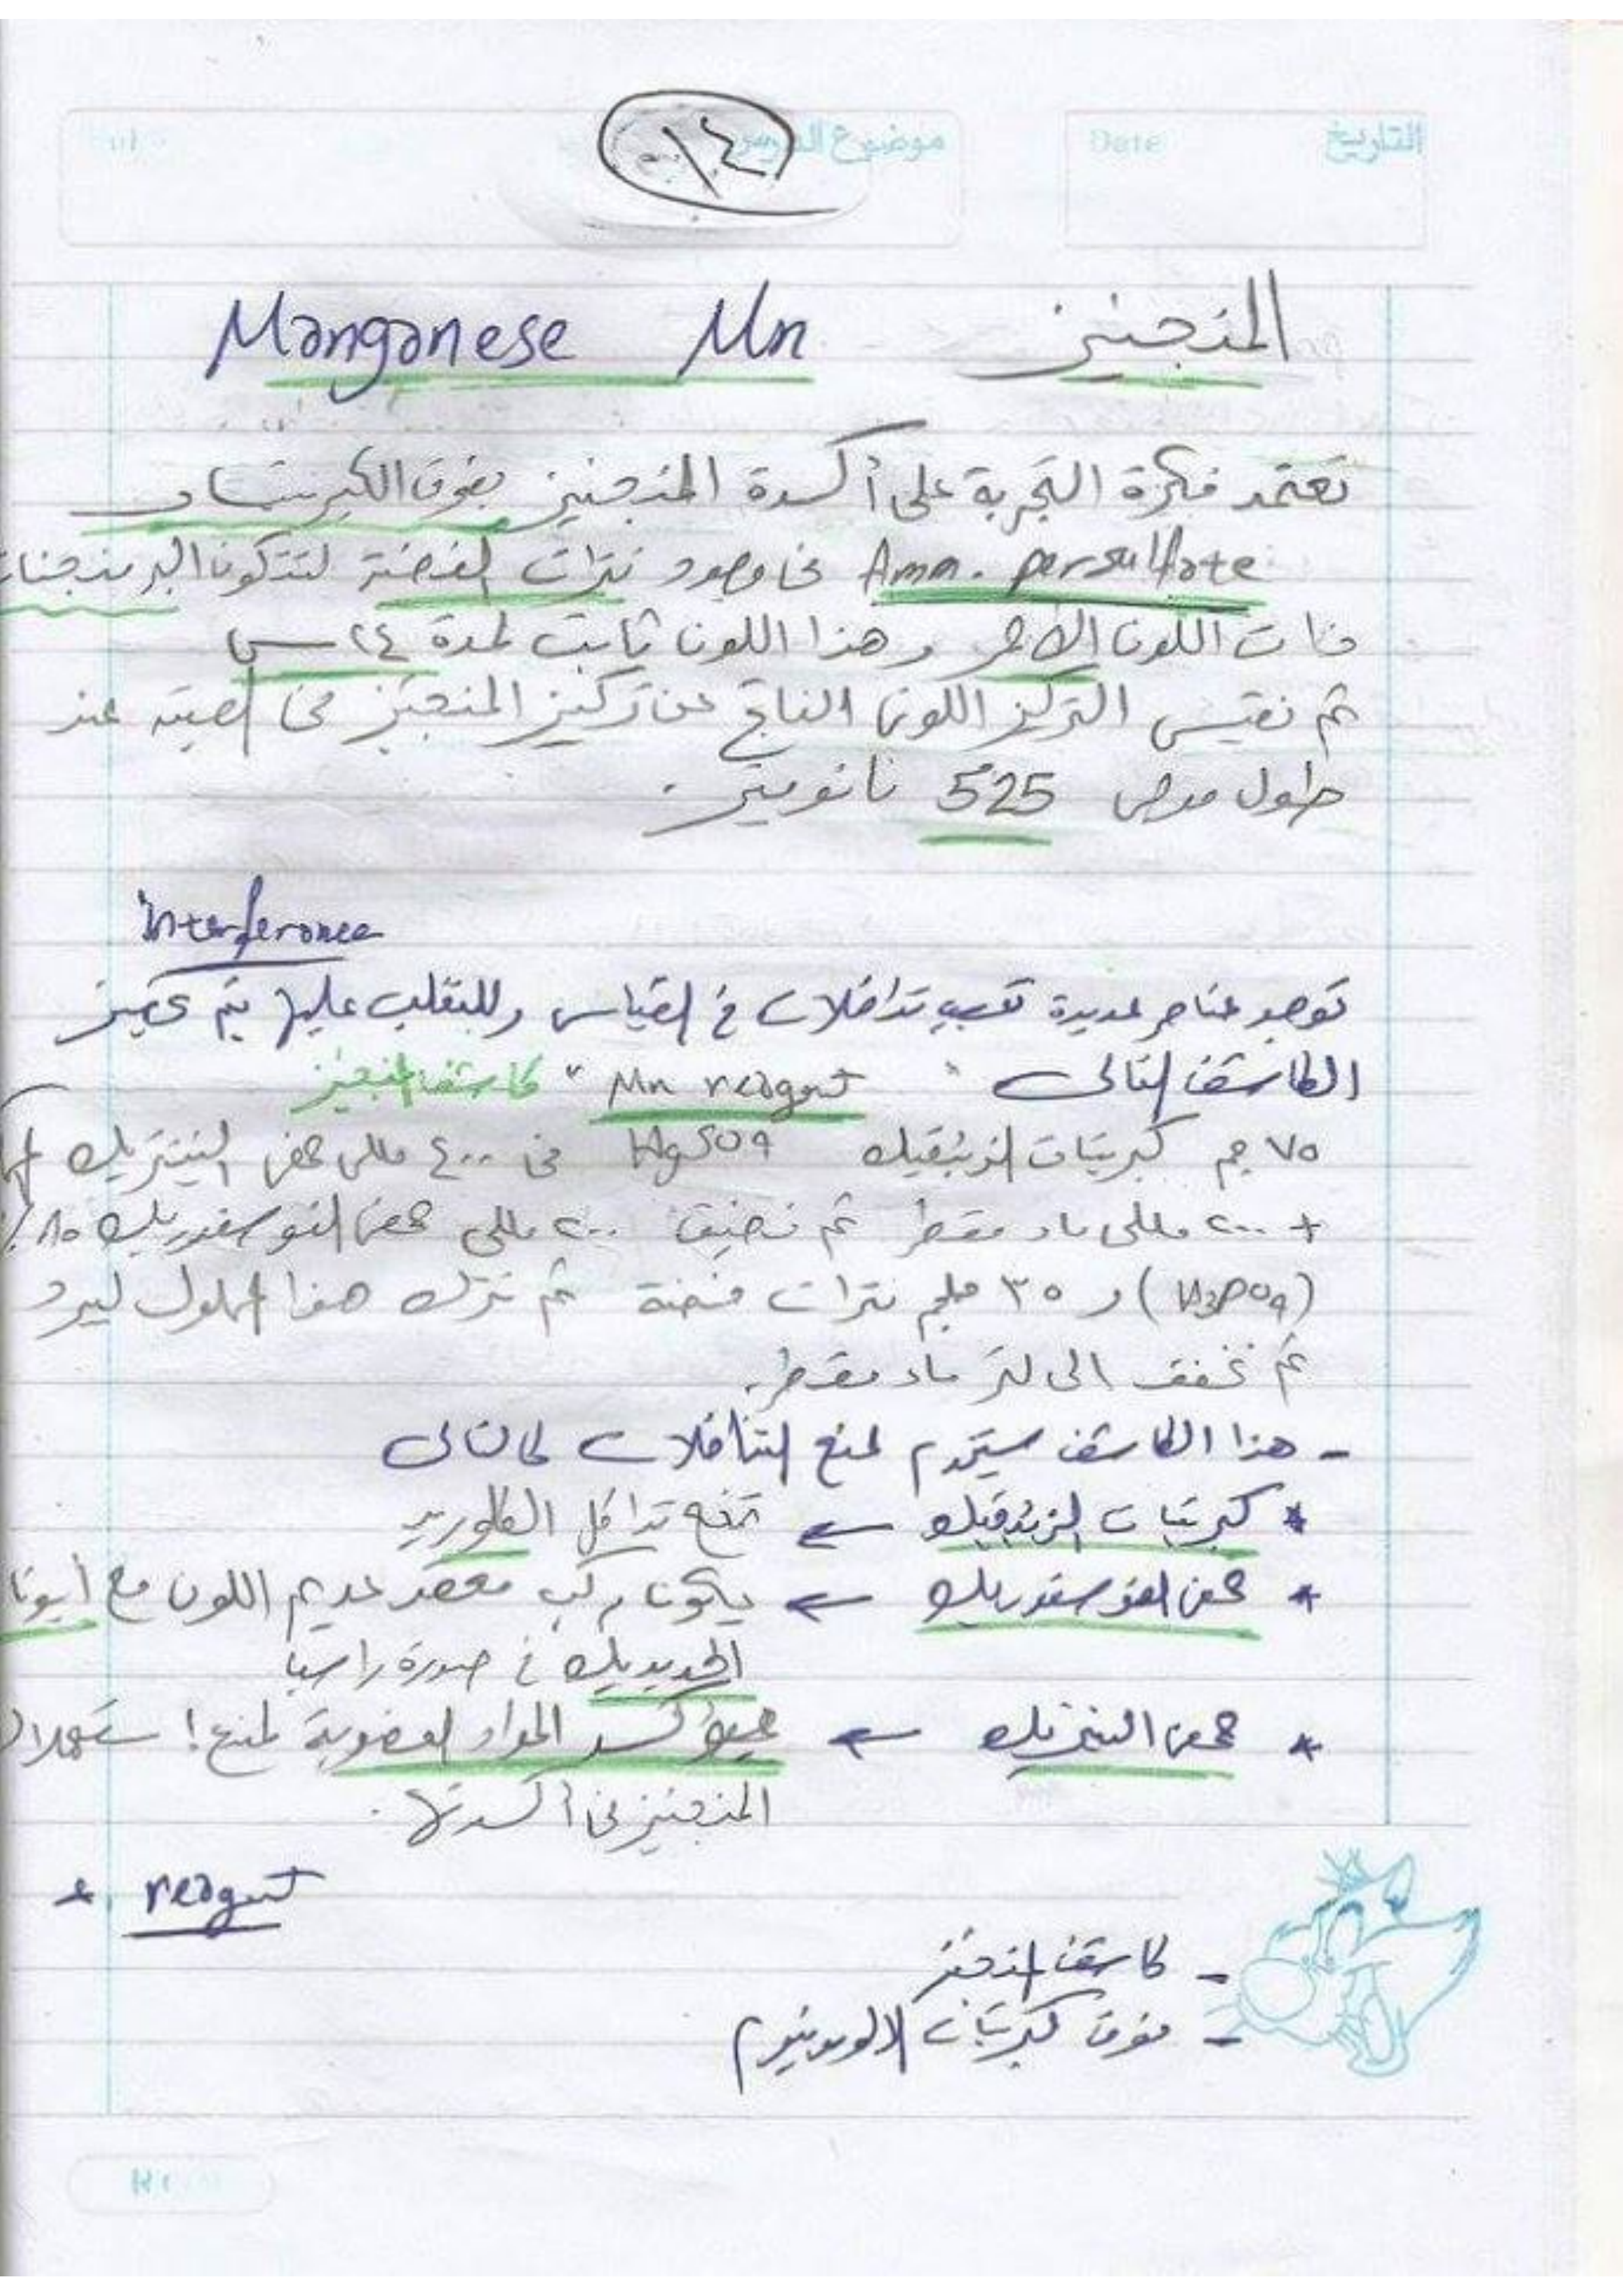 التاريخ Date موضوع الدرس
١٤
المنجنيز Manganese Mn
تعتمد فكرة التجربة على أكسدة المنجنيز بفوق الكبريتات
Amm. persulfate فى وجود نترات الفضة لتتكون البرمنجنات
ذات اللون الأحمر وهذا اللون ثابت لمدة ٢٤ س
ثم نقيس التركيز اللونى الناتج عن تركيز المنجنيز فى العينة عند
طول موجى 525 نانومتر.
Interference
توجد عناصر عديدة تسبب تداخلات فى القياس وللتغلب عليها يتم تحضير
الكاشف التالى " Mn reagent " كاشف المنجنيز
٧٥ جم كبريتات الزئبقيك HgSO4 فى ٤٠٠ مللى حمض النيتريك
+ ٢٠٠ مللى ماء مقطر ثم نضيف ٢٠٠ مللى حمض الفوسفوريك ٨٥٪
(H3PO4) و ٣٥ ملجم نترات فضة ثم نترك هذا المحلول ليبرد
ثم نخفف الى لتر ماء مقطر.
- هذا الكاشف يستخدم لمنع التداخلات كالتالى
* كبريتات الزئبقيك ← تمنع تداخل الكلوريد
* حمض الفوسفوريك ← يكون مركب معقد عديم اللون مع أيونا
الحديديك فى صورة راسب
* حمض النيتريك ← يؤكسد المواد العضوية لمنع استهلاك
المنجنيز فى أكسدتها.
* reagent
- كاشف المنجنيز
- فوق كبريتات الامونيوم